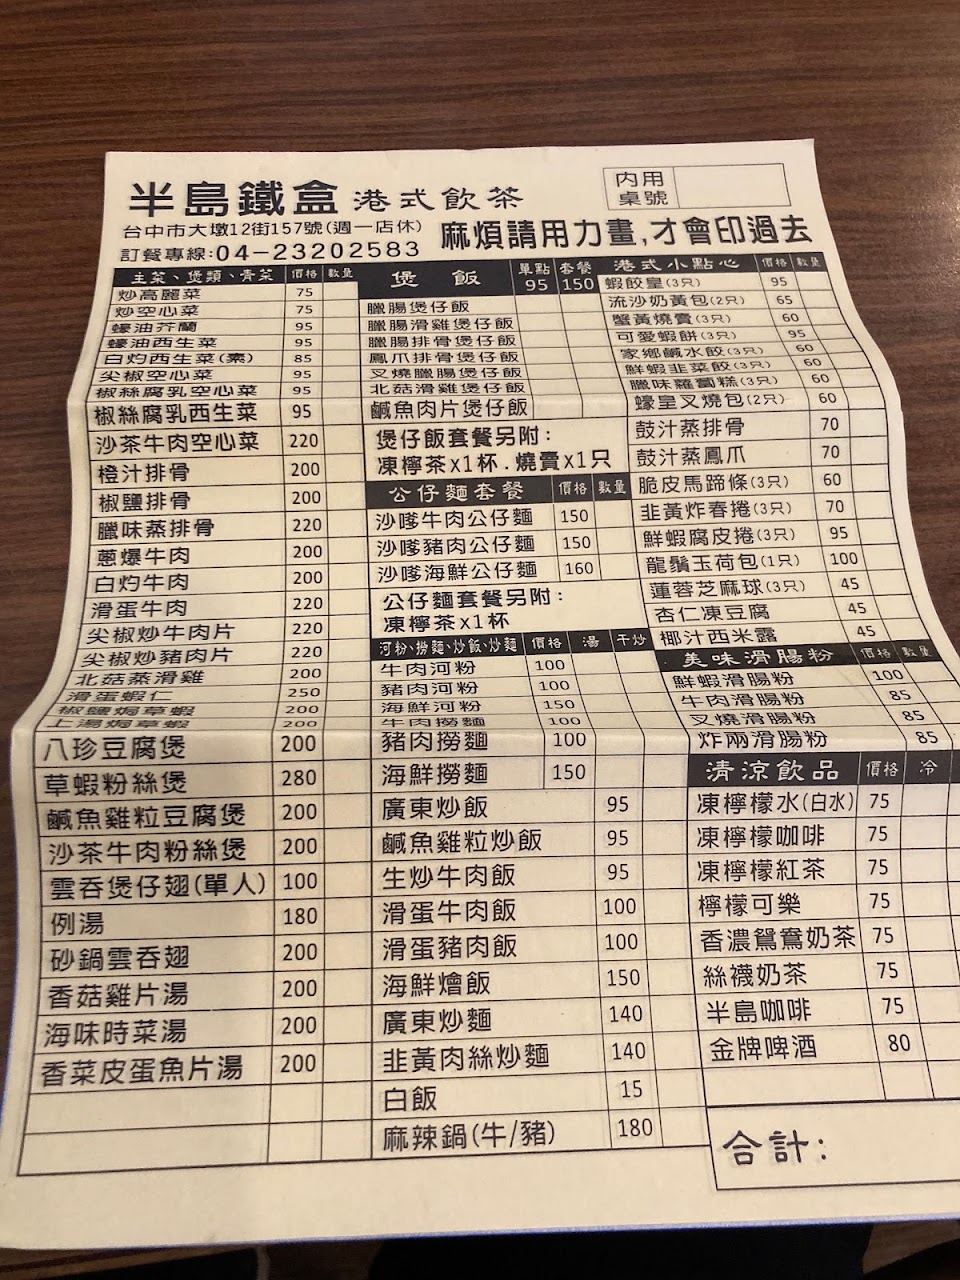 半島鐵盒 港式飲茶
內用
桌號
台中市大墩12街157號(週一店休)
訂餐專線:04-23202583
麻煩請用力畫,才會印過去
主菜、煲類、青菜 價格 數量
炒高麗菜 75
炒空心菜 75
蠔油芥蘭 95
蠔油西生菜 95
白灼西生菜(素) 85
尖椒空心菜 95
椒絲腐乳空心菜 95
椒絲腐乳西生菜 95
沙茶牛肉空心菜 220
橙汁排骨 200
椒鹽排骨 200
臘味蒸排骨 220
蔥爆牛肉 200
白灼牛肉 200
滑蛋牛肉 220
尖椒炒牛肉片 220
尖椒炒豬肉片 220
北菇蒸滑雞 200
滑蛋蝦仁 250
椒鹽焗草蝦 200
上湯焗草蝦 200
八珍豆腐煲 200
草蝦粉絲煲 280
鹹魚雞粒豆腐煲 200
沙茶牛肉粉絲煲 200
雲吞煲仔翅(單人) 100
例湯 180
砂鍋雲吞翅 200
香菇雞片湯 200
海味時菜湯 200
香菜皮蛋魚片湯 200
煲飯 單點 95 套餐 150
臘腸煲仔飯
臘腸滑雞煲仔飯
臘腸排骨煲仔飯
鳳爪排骨煲仔飯
叉燒臘腸煲仔飯
北菇滑雞煲仔飯
鹹魚肉片煲仔飯
煲仔飯套餐另附:
凍檸茶x1杯.燒賣x1只
公仔麵套餐 價格 數量
沙嗲牛肉公仔麵 150
沙嗲豬肉公仔麵 150
沙嗲海鮮公仔麵 160
公仔麵套餐另附:
凍檸茶x1杯
河粉、撈麵、炒飯、炒麵 價格 湯 干炒
牛肉河粉 100
豬肉河粉 100
海鮮河粉 150
牛肉撈麵 100
豬肉撈麵 100
海鮮撈麵 150
廣東炒飯 95
鹹魚雞粒炒飯 95
生炒牛肉飯 95
滑蛋牛肉飯 100
滑蛋豬肉飯 100
海鮮燴飯 150
廣東炒麵 140
韭黃肉絲炒麵 140
白飯 15
麻辣鍋(牛/豬) 180
港式小點心 價格 數量
蝦餃皇(3只) 95
流沙奶黃包(2只) 65
蟹黃燒賣(3只) 60
可愛蝦餅(3只) 95
家鄉鹹水餃(3只) 60
鮮蝦韭菜餃(3只) 60
臘味蘿蔔糕(3只) 60
蠔皇叉燒包(2只) 60
鼓汁蒸排骨 70
鼓汁蒸鳳爪 70
脆皮馬蹄條(3只) 60
韭黃炸春捲(3只) 70
鮮蝦腐皮捲(3只) 95
龍鬚玉荷包(1只) 100
蓮蓉芝麻球(3只) 45
杏仁凍豆腐 45
椰汁西米露 45
美味滑腸粉 價格 數量
鮮蝦滑腸粉 100
牛肉滑腸粉 85
叉燒滑腸粉 85
炸兩滑腸粉 85
清涼飲品 價格 冷
凍檸檬水(白水) 75
凍檸檬咖啡 75
凍檸檬紅茶 75
檸檬可樂 75
香濃鴛鴦奶茶 75
絲襪奶茶 75
半島咖啡 75
金牌啤酒 80
合計: